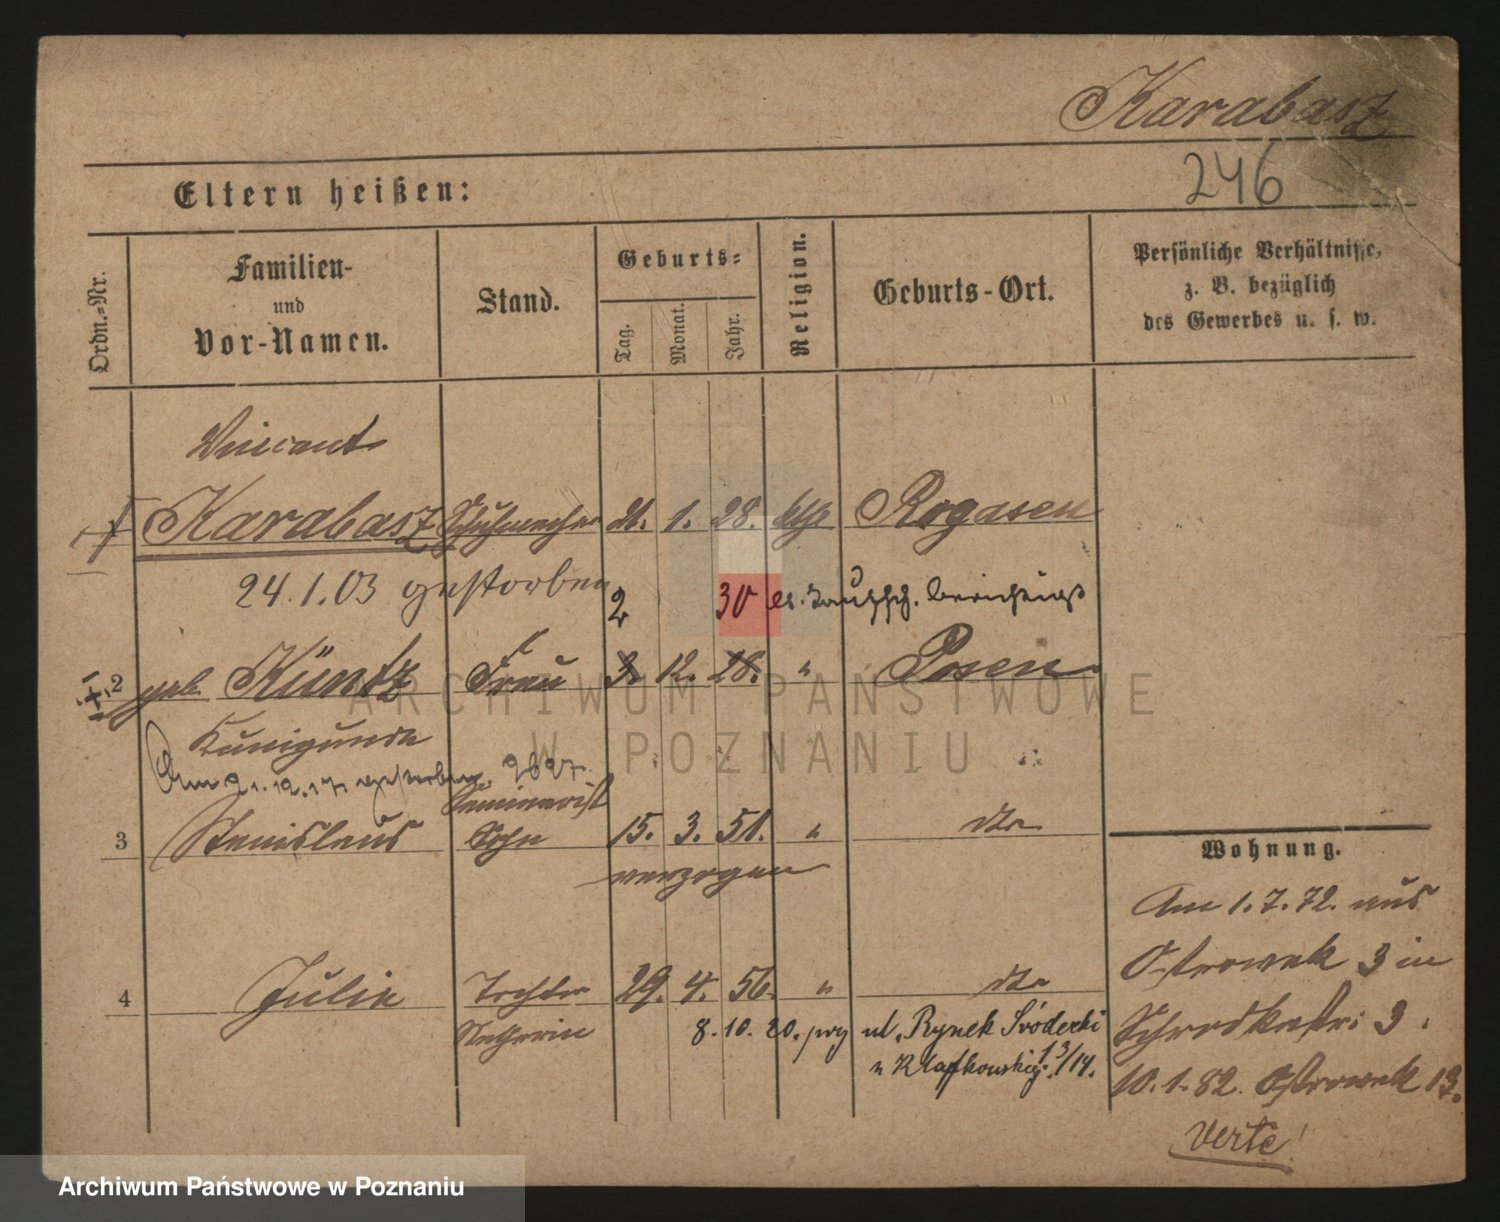 Karabasz
246
Eltern heißen:
Ordn.-Nr.
Familien-
und
Vor-Namen.
Stand.
Geburts-
Tag.
Monat.
Jahr.
Religion.
Geburts-Ort.
Persönliche Verhältnisse,
z. B. bezüglich
des Gewerbes u. s. w.
Vincent
1 Karabasz Schuhmacher 21. 1. 28. kth Rogasen
24.1.03 gestorben
2 30 Taufsch. berichtigt
2 geb. Küntz Frau 3. 12. 28. " Posen
Kunigunde
Am 21.12.17 gestorben.
Seminarist
3 Stanislaus Sohn 15. 3. 51. " dto
verzogen
4 Julie Tochter 29. 4. 56. " dto
Näherin 8.10.20. przy ul. Rynek Śródecki
u Klafkowskiej 13/14.
Wohnung.
Am 1.7.72. aus
Ostrowek 3 in
Schrodkastr: 3.
10.1.82. Ostrowek 13.
Verte!
ARCHIWUM PAŃSTWOWE
W POZNANIU
Archiwum Państwowe w Poznaniu